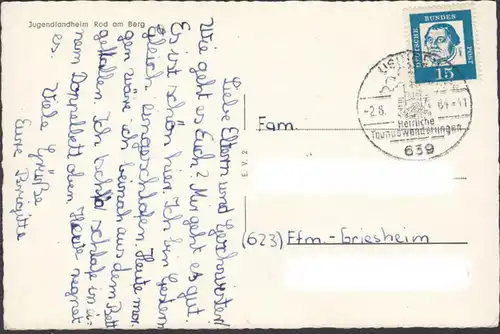 Jugendlandheim Rod am Berg
Liebe Eltern und Geschwister!
Wie geht es Euch? Mir geht es gut.
Es ist schön hier. Ich bin gestern
gleich eingeschlafen. Heute mor
gen wäre ich beinah aus dem Bett
gefallen. Ich schlafe in ei-
nem Doppelbett oben. Heute regnet
es.
Viele Grüße
Eure Birgitte
E.V.2
DEUTSCHE BUNDES POST
15
USINGEN
-2.6. 64-11
Herrliche
Taunuswanderungen
639
Fam.
(623) Ffm.-Griesheim